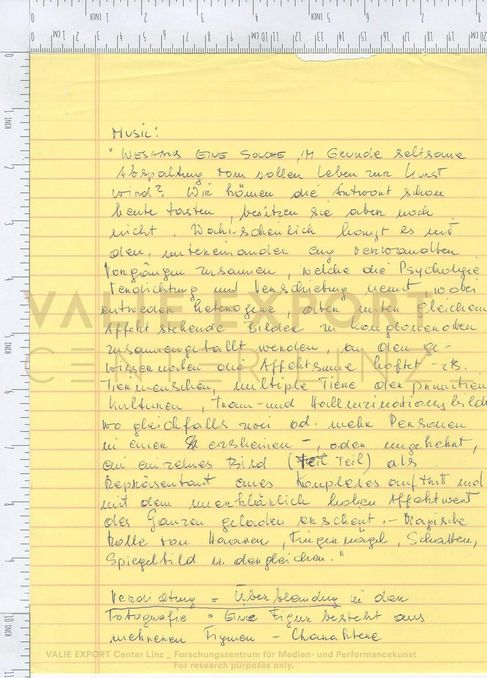 Music:
"WESHALB EINE SOLCHE, im Grunde seltsame
Abspaltung vom vollen Leben zur Kunst
wird? Wir können die Antwort schon
heute tasten, besitzen sie aber noch
nicht. Wahrscheinlich hängt es mit
den, untereinander eng verwandten
Vorgängen zusammen, welche die Psychologie
Verdichtung und Verschiebung nennt, wobei
entweder heterogene, aber unter gleichem
Affekt stehende Bilder zu Konglomeraten
zusammengeballt werden, an denen
die Affektsumme haftet - zB.
Tiermenschen, multiple Tiere der primitiven
Kulturen, Traum- und Halluzinationsbilder
wo gleichfalls zwei od. mehr Personen
in einer erscheinen -, oder umgekehrt,
ein einzelnes Bild (Teil Teil) als
Repräsentant eines Komplexes auftritt und
mit dem unerklärlich hohen Affektwert
des Ganzen geladen erscheint. - Magische
Rolle von Haaren, Fingernägel, Schatten,
Spiegelbild u. dergleichen."
Verdichtung = Überblendung in der
Fotografie = Eine Figur besteht aus
mehreren Figuren - Charaktere
VALIE EXPORT
CENTER LINZ
VALIE EXPORT Center Linz _ Forschungszentrum für Medien- und Performancekunst
For research purposes only.